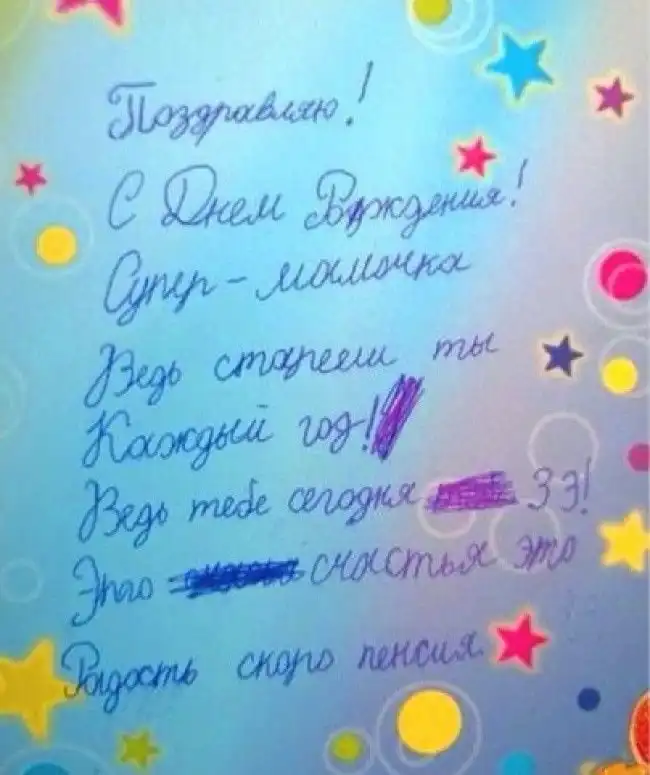 Поздравляю!
С Днем Рождения!
Супер-мамочка
Ведь старееш ты
Каждый год!
Ведь тебе сегодня 39!
Это счастья это
Радость скоро пенсия.